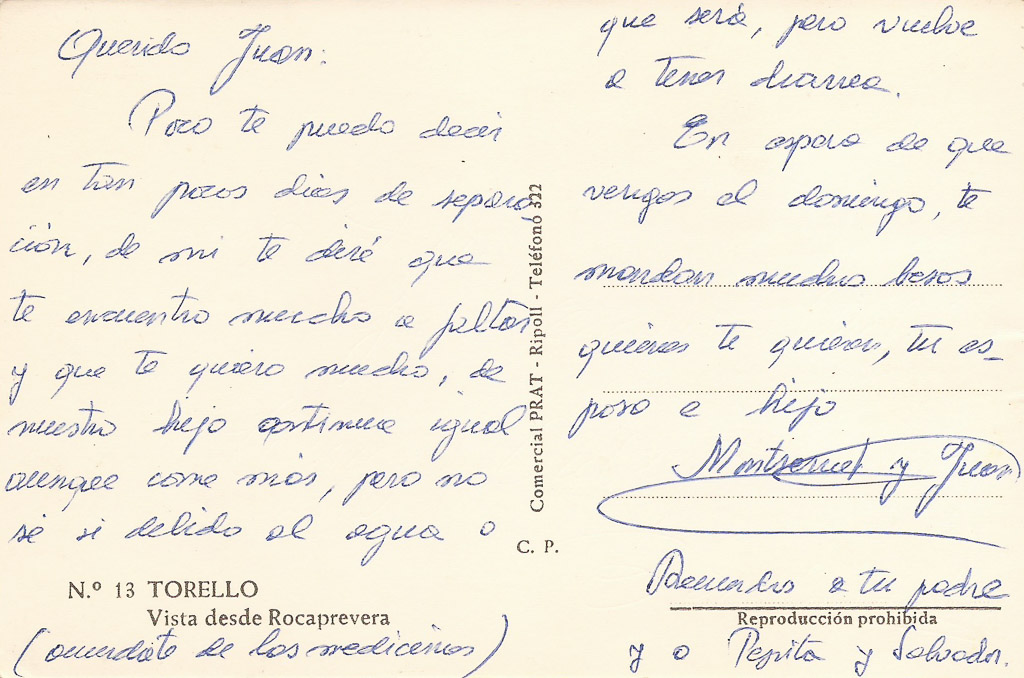 Querido Juan:
Poco te puedo decir
en tan pocos dias de separa
ción, de mi te diré que
te encuentro mucho a faltar
y que te quiero mucho, de
nuestro hijo continua igual
aunque come más, pero no
sé si debido al agua o
que será, pero vuelve
a tener diarrea.
En espera de que
vengas el domingo, te
mandan muchos besos
quienes te quieren, tu es-
posa e hijo
Montserrat y Juan
Recuerdos a tu padre
y a Pepita y Salvador.
(acuerdate de las medicinas)
N.º 13 TORELLO
Vista desde Rocaprevera
C. P.
Comercial PRAT - Ripoll - Teléfono 322
Reproducción prohibida